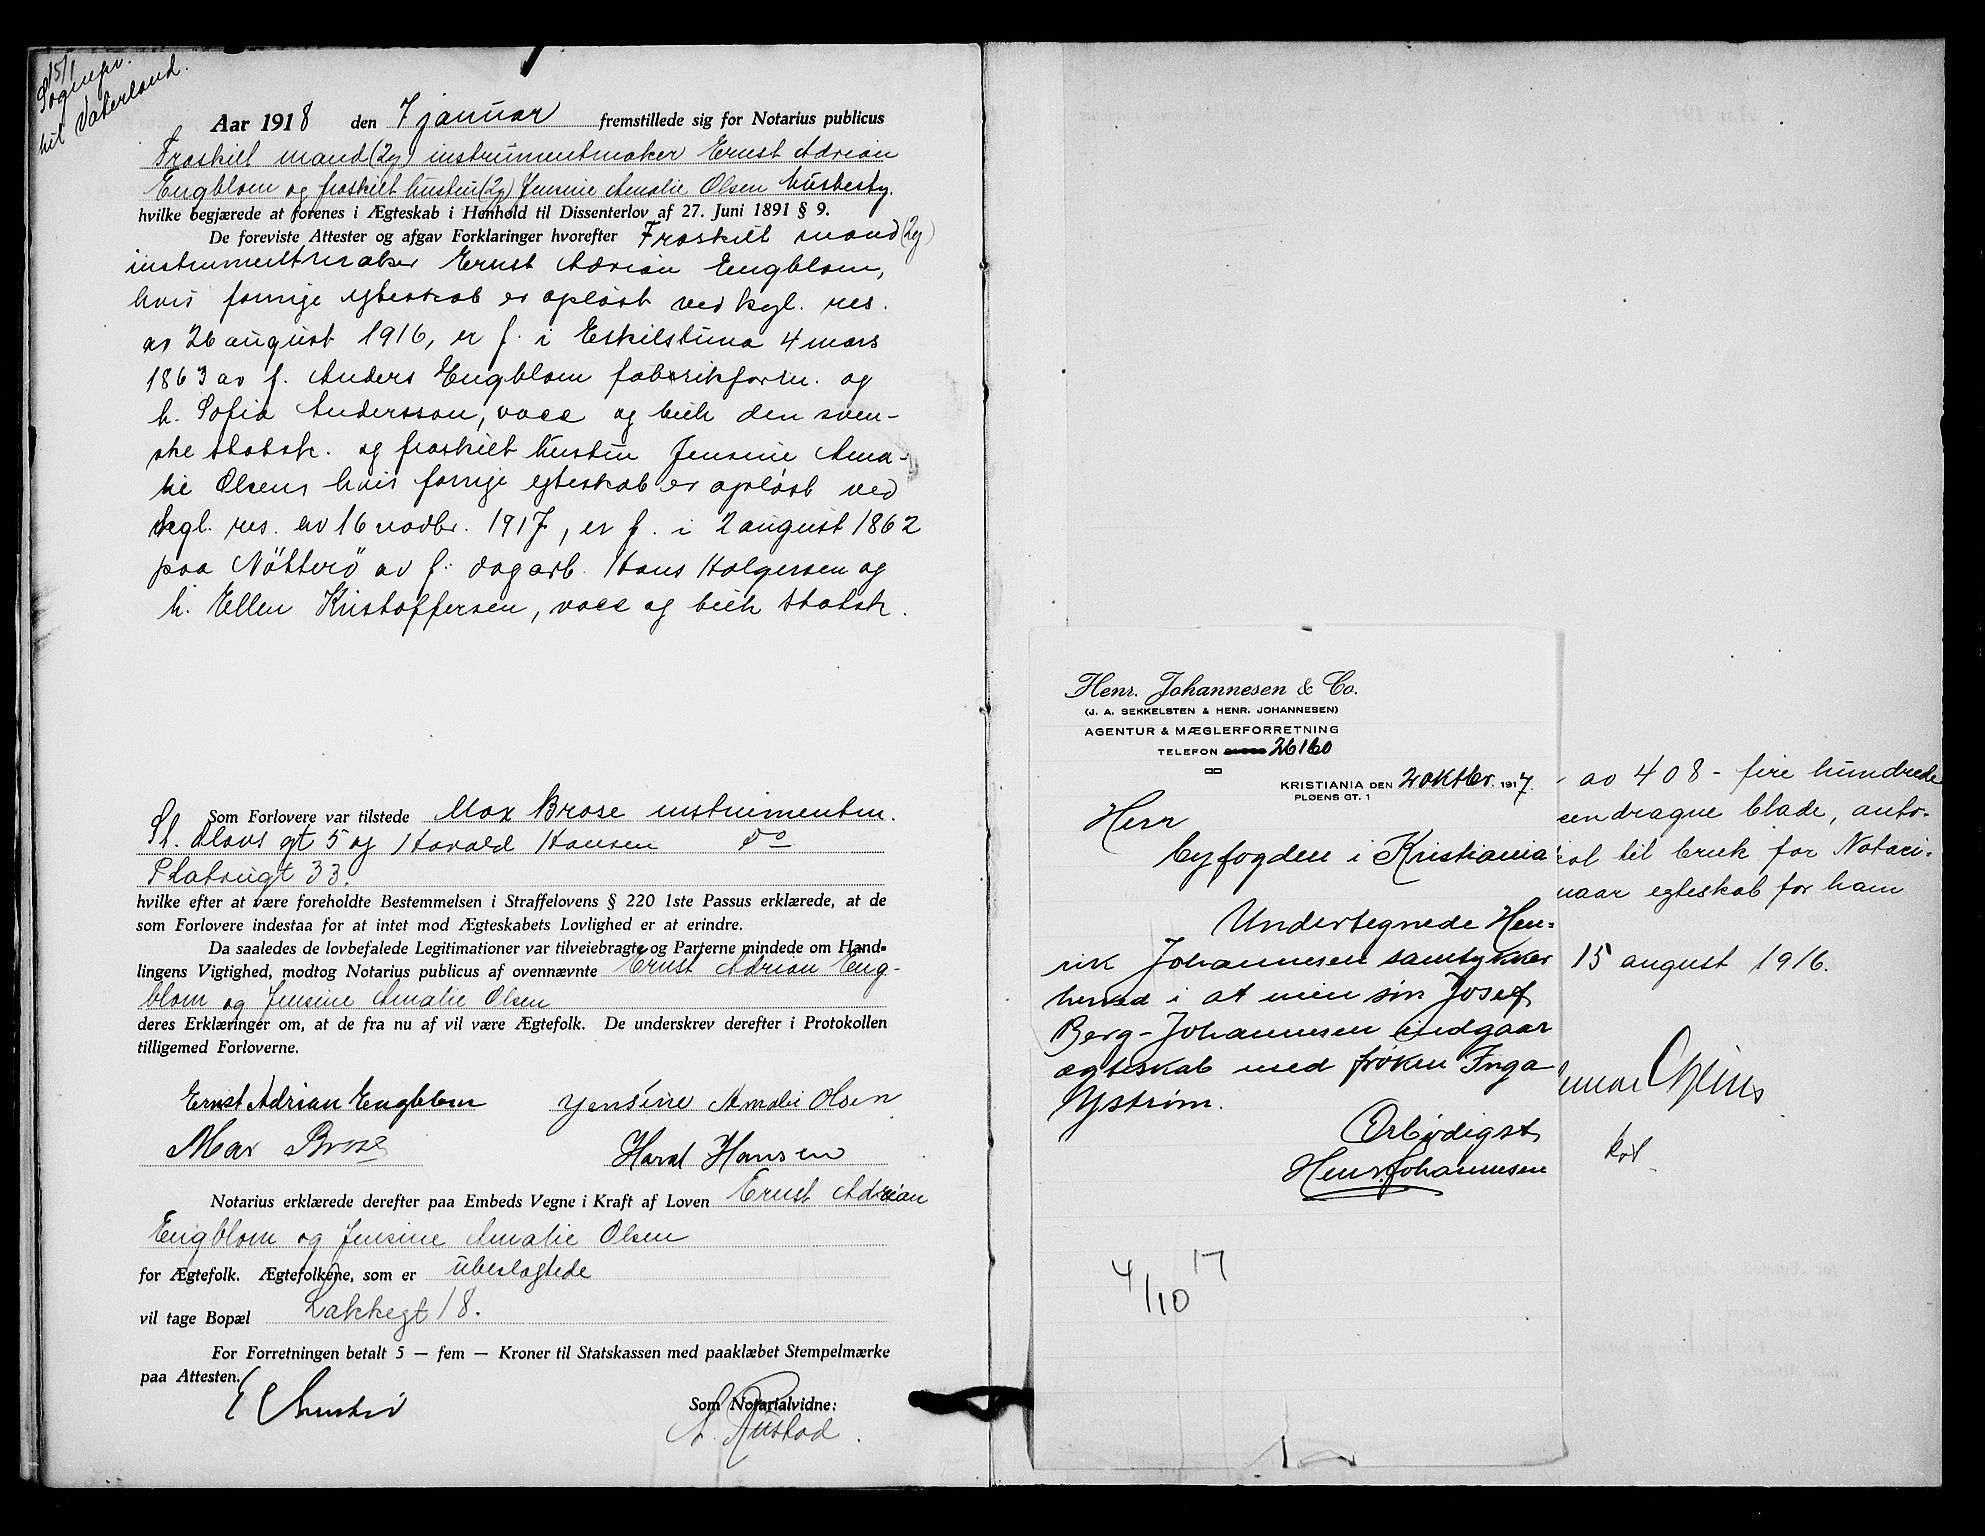 15/1
Sognepr.
til Vaterland.
Aar 1918 den 7 januar fremstillede sig for Notarius publicus
Fraskilt mand (2g) instrumentmaker Ernst Adrian
Engblom og fraskilt hustru (2g) Jensine Amalie Olsen husbesty.
hvilke begjærede at forenes i Ægteskab i Henhold til Dissenterlov af 27. Juni 1891 § 9.
De foreviste Attester og afgav Forklaringer hvorefter Fraskilt mand (2g)
instrumentmaker Ernst Adrian Engblom,
hvis forrige egteskab er opløst ved kgl. res.
av 26 august 1916, er f. i Eskilstuna 4 mars
1863 av f. Anders Engblom fabrikform. og
h. Sofia Andersson, vacc og beih den sven-
ske statsk. og fraskilt hustru Jensine Ama-
lie Olsen, hvis forrige egteskab er opløst ved
kgl. res. av 16 novbr. 1917, er f. i 2 august 1862
paa Nøtterø av f. dagarb. Hans Holgersen og
h. Ellen Kristoffersen, vacc og beih statsk.
Som Forlovere var tilstede Max Brose instrumentm.
St. Olavs gt 5 og Harald Hansen do
Platougt 33.
hvilke efter at være foreholdte Bestemmelsen i Straffelovens § 220 1ste Passus erklærede, at de
som Forlovere indestaa for at intet mod Ægteskabets Lovlighed er at erindre.
Da saaledes de lovbefalede Legitimationer var tilveiebragte og Parterne mindede om Hand-
lingens Vigtighed, modtog Notarius publicus af ovennævnte Ernst Adrian Eng-
blom og Jensine Amalie Olsen
deres Erklæringer om, at de fra nu af vil være Ægtefolk. De underskrev derefter i Protokollen
tilligemed Forloverne.
Ernst Adrian Engblom Yensine Amalie Olsen
Max Brose Haral Hansen
Notarius erklærede derefter paa Embeds Vegne i Kraft af Loven Ernst Adrian
Engblom og Jensine Amalie Olsen
for Ægtefolk. Ægtefolkene, som er ubeslegtede
vil tage Bopæl Lakkegt 18.
For Forretningen betalt 5 — fem — Kroner til Statskassen med paaklæbet Stempelmærke
paa Attesten.
Som Notarialvidne:
A. Rustad.
Henr. Johannesen & Co.
(J. A. SEKKELSTEN & HENR. JOHANNESEN)
AGENTUR & MÆGLERFORRETNING
TELEFON 26160
KRISTIANIA DEN 2 oktbr. 1917.
PLØENS GT. 1
Herr
byfogden i Kristiania
Undertegnede Hen-
rik Johannesen samtykker
herved i at min søn Josef
Berg-Johannesen indgaar
ægteskab med frøken Inga
Ystrøm.
Ærbødigst
Henr. Johannesen
4/10 17
av 408 - fire hundrede
endragne blade, auto-
kol til bruk for Notari-
naar egteskab for ham
15 august 1916.